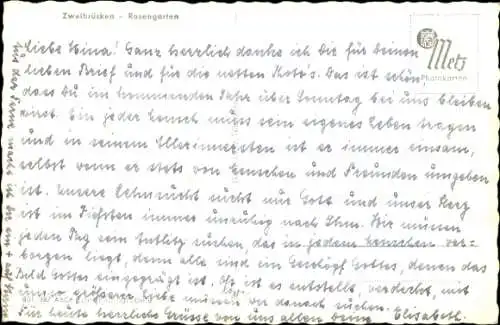 Zweibrücken - Rosengarten
Metz
Photokarten
Liebe Nina! Ganz herrlich danke ich Dir für Deinen
lieben Brief und für die netten Foto's. Das ist schön
dass du im kommenden Jahr über Sonntag bei uns bleiben
wirst. Ein jeder Mensch muss sein eigenes Leben tragen
und in seinem Allerinnersten ist er immer einsam,
selbst wenn er stets von Menschen und Freunden umgeben
ist. Unsere Sehnsucht sucht nur Gott und unser Herz
ist im Tiefsten immer unruhig nach Ihm. Wir müssen
jeden Tag sein Antlitz suchen, das in jedem Menschen ver-
borgen liegt, denn alle sind ein Geschöpf Gottes, denen das
Bild Gottes eingeprägt ist. Oft ist es entstellt, verdeckt, mit
um so grösserer Liebe müssen wir danach suchen.
Für heute herzliche Grüsse von uns allen Deine Elisabeth.